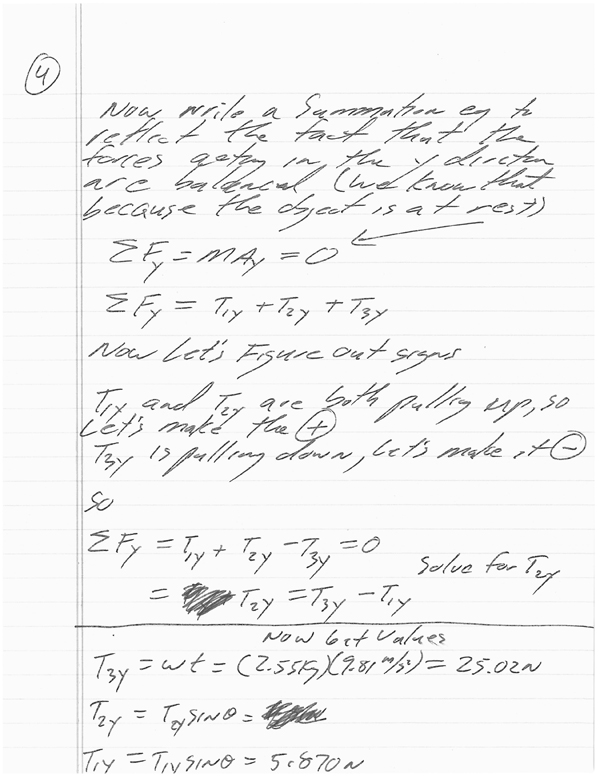 4
Now write a Summation eq to
reflect the fact that the
forces acting in the y direction
are balanced (we know that
because the object is at rest)
ΣFy = MAy = 0
ΣFy = T1y + T2y + T3y
Now Let's Figure out signs
T1y and T2y are both pulling up, so
Let's make the +
T3y is pulling down, Let's make it -
So
ΣFy = T1y + T2y - T3y = 0
Solve for T2y
= T2y = T3y - T1y
Now Get Values
T3y = wt = (2.55Kg)(9.81 m/s²) = 25.02N
T2y = T2y SINθ =
T1y = T1y SINθ = 5.870N